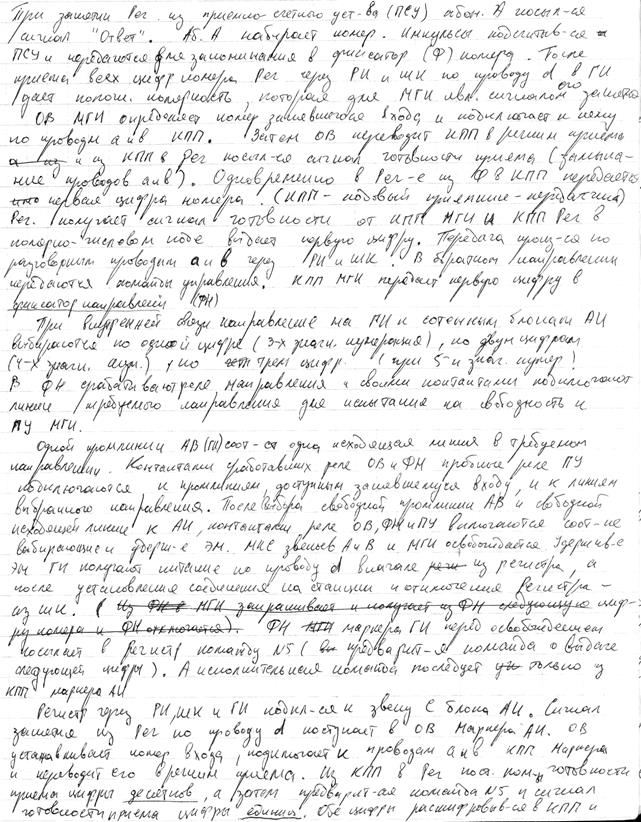 При занятии Рег. из приемно-счетного уст-ва (ПСУ) абон. А посыл-ся
сигнал "Ответ". Аб. А набирает номер. Импульсы подсчитыв-ся в
ПСУ и передаются для запоминания в фиксатор (Ф) номера. После
приема всех цифр номера Рег через РИ и ШК по проводу d в ГИ
дает полож. полярность, которая для МГИ явл. сигналом его занятия
ОВ МГИ определяет номер занявшегося входа и подключает к нему
по проводам а и в КПП. Затем ОВ переводит КПП в режим приема
и из КПП в Рег посыл-ся сигнал готовности приема (замыка-
ние проводов а и в). Одновременно в Рег-е из Ф в КПП передается
первая цифра номера. (КПП - кодовый приемник-передатчик)
Рег. получает сигнал готовности от КПП МГИ и КПП Рег в
полярно-числовом коде выдает первую цифру. Передача произ-ся по
разговорным проводам а и в через РИ и ШК. В обратном направлении
передаются команды управления. КПП МГИ передает первую цифру в
фиксатор направлений (ФН)
При внутренней связи направление на ГИ к сотенным блокам АИ
выбираются по одной цифре (3-х значн. нумерация), по двум цифрам
(4-х значн. нум.), и по трем цифр. (при 5-и знач. нумер)
В ФН срабатывают реле направления и своими контактами подключают
линии требуемого направления для испытания на свободность к
ПУ МГИ.
Одной промлинии АВ (ГИ) соот-ст одна исходящая линия в требуемом
направлении. Контактами сработавших реле ОВ и ФН пробные реле ПУ
подключаются к промлиниям, доступным занявшемуся входу, и к линиям
выбранного направления. После выбора свободной промлинии АВ и свободной
исходящей линии к АИ, контактами реле ОВ, ФН и ПУ включаются соот-ие
выбирающие и удерж-е ЭМ. МКС звеньев А и В и МГИ освобождается. Удержив-е
ЭМ ГИ получают питание по проводу d вначале из регистра, а
после установления соединения на станции и отключения Регистра -
из ШК. (Из ФН в МГИ запрашивает и получает из ФН следующую циф-
ру номера и ФН отключается). ФН маркера ГИ перед освобождением
посылает в Регистр команду N5 (предварит-я команда о выдаче
следующей цифры). А исполнительная команда последует только из
КПП маркера АИ
Регистр через РИ, ШК и ГИ подкл-ся к звену С блока АИ. Сигнал
занятия из Рег по проводу d поступает в ОВ Маркера АИ. ОВ
устанавливает номер входа, подключает к проводам а и в КПП Маркера
и переводит его в режим приема. Из КПП в Рег пос. готовности
приема цифры десятков, а затем предварит-ая команда N5 и сигнал
готовности приема цифры единиц. Обе цифры расшифровыв-ся в КПП и